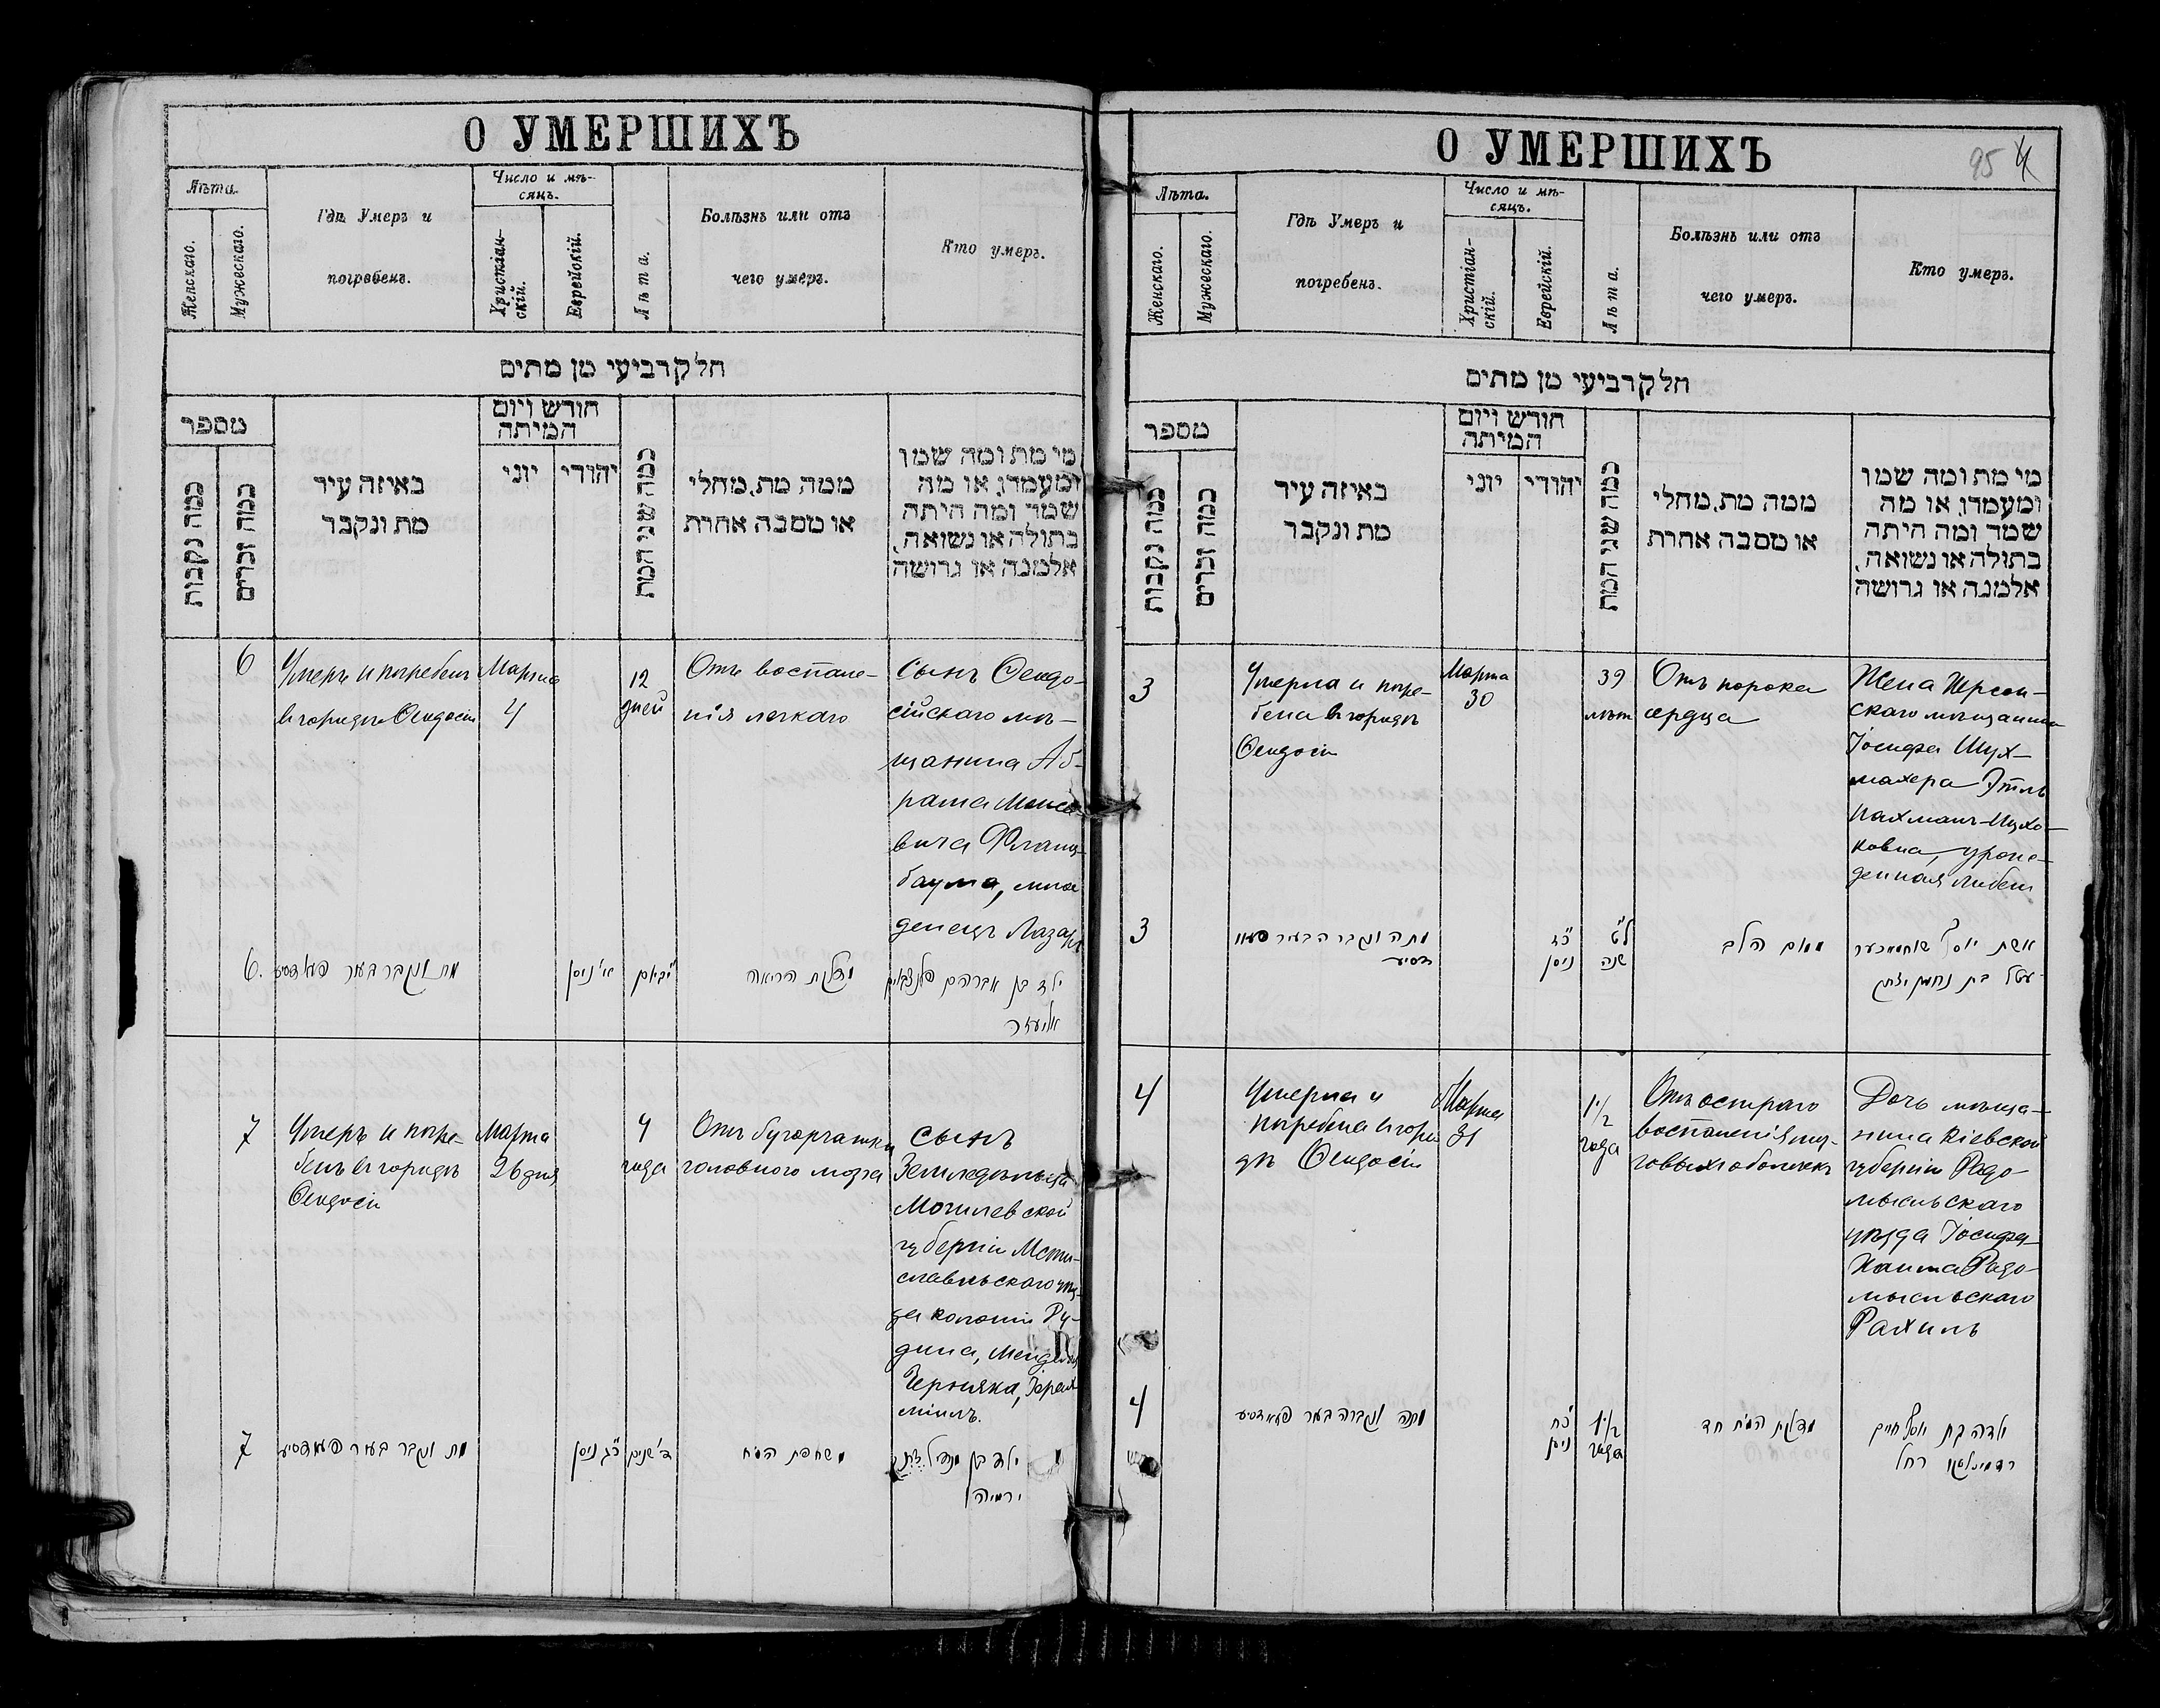 О УМЕРШИХЪ
Лѣта.
Женскаго.
Мужескаго.
Гдѣ Умеръ и
погребенъ.
Число и мѣ-
сяцъ.
Христіан-
скій.
Еврейскій.
Лѣта.
Болѣзнь или отъ
чего умеръ.
Кто умеръ.
חלק רביעי מן מתים
מספר
כמה נקבות
כמה זכרים
באיזה עיר
מת ונקבר
חודש ויום
המיתה
יוני
יהודי
כמה שני המת
ממה מת, מחלי
או מסבה אחרת
מי מת ומה שמו
ומעמדו, או מה
שמה ומה היתה
בתולה או נשואה,
אלמנה או גרושה
6
Умеръ и погребенъ
въ городѣ Ѳеодосіи
Марта
4
12
дней
Отъ воспале-
нія легкаго
Сынъ Ѳеодо-
сійскаго мѣ-
щанина Аб-
рама Моисе
вича
баума, мла
денецъ Лазарь
6.
מת ונקבר בעיר
ניסן
דלקת הריאה
ילד בן אברהם
אליעזר
7
Умеръ и погре-
бенъ въ городѣ
Ѳеодосіи
Марта
26 дня
4
года
Отъ бугорчатки
головного мозга
Сынъ
Земледѣльца
Могилевской
губерніи Мсти-
славльскаго уѣз-
да колоніи Ру-
дина, Менделя
Черняка, Іерах
міилъ.
7
מת ונקבר בעיר
כ״ג ניסן
ד׳ שנים
שחפת המוח
ילד בן
О УМЕРШИХЪ
95
Лѣта.
Женскаго.
Мужескаго.
Гдѣ Умеръ и
погребенъ.
Число и мѣ-
сяцъ.
Христіан-
скій.
Еврейскій.
Лѣта.
Болѣзнь или отъ
чего умеръ.
Кто умеръ.
חלק רביעי מן מתים
מספר
כמה נקבות
כמה זכרים
באיזה עיר
מת ונקבר
חודש ויום
המיתה
יוני
יהודי
כמה שני המת
ממה מת, מחלי
או מסבה אחרת
מי מת ומה שמו
ומעמדו, או מה
שמה ומה היתה
בתולה או נשואה,
אלמנה או גרושה
3
Умерла и погре-
бена въ городѣ
Ѳеодосіи
Марта
30
39
лѣтъ
Отъ порока
сердца
Жена Херсон-
скаго мѣщанина
Іосифа Шух-
махера Этль
Нахманъ-
ковна, урож-
денная
3
מתה ונקברה בעיר
ניסן
ל״ט
שנה
מום הלב
אשת יוסף שוחמכער
עטל בת נחמן יצחק
4
Умерла и
погребена въ горо
дѣ Ѳеодосіи
Марта
31
1 1/2
года
Отъ остраго
воспаленія моз-
говыхъ оболочекъ
Дочь мѣща-
нина Кіевской
губерніи Радо-
мысльскаго
уѣзда Іосифа-
Хаима Радо-
мысльскаго
Рахиль
4
מתה ונקברה בעיר
כ״ח
ניסן
1 1/2
года
דלקת המוח חד
ילדה בת יוסף חיים
רחל